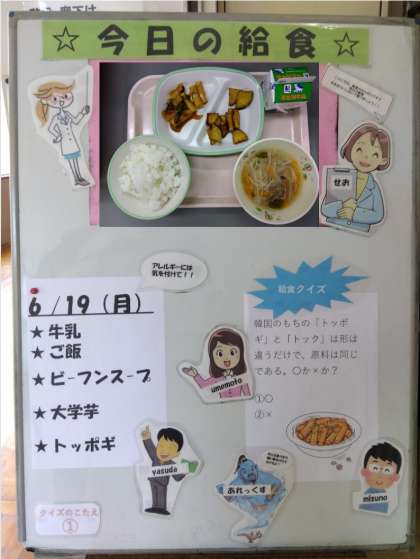 ☆今日の給食☆
せお
アレルギーには
気を付けて！！
6/19（月）
★牛乳
★ご飯
★ビーフンスープ
★大学芋
★トッポギ
給食クイズ
韓国のもちの「トッポ
ギ」と「トック」は形は
違うだけで、原料は同じ
である。○か×か？
①○
②×
umemoto
yasuda
あれっくす
mizuno
クイズのこたえ
①